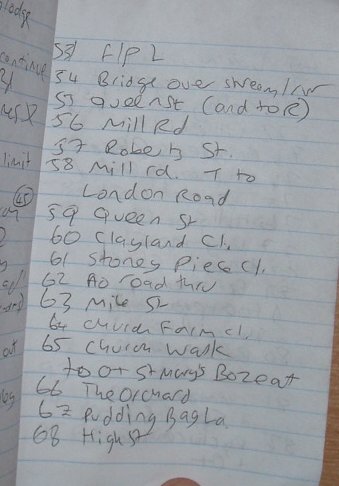 53 F/P L
54 Bridge over stream/rvr
55 Queenst (and to R)
56 Mill Rd
57 Roberts St.
58 Mill rd. T to
London Road
59 Queen St
60 Clayland Cl.
61 Stoney Piece Cl.
62 No road thru
63 Mile St
64 Church Farm cl.
65 Church Walk
to o+ St Mary's Bozeat
66 The Orchard
67 Pudding Bag La
68 High St
lodge
continue
limit
45
out